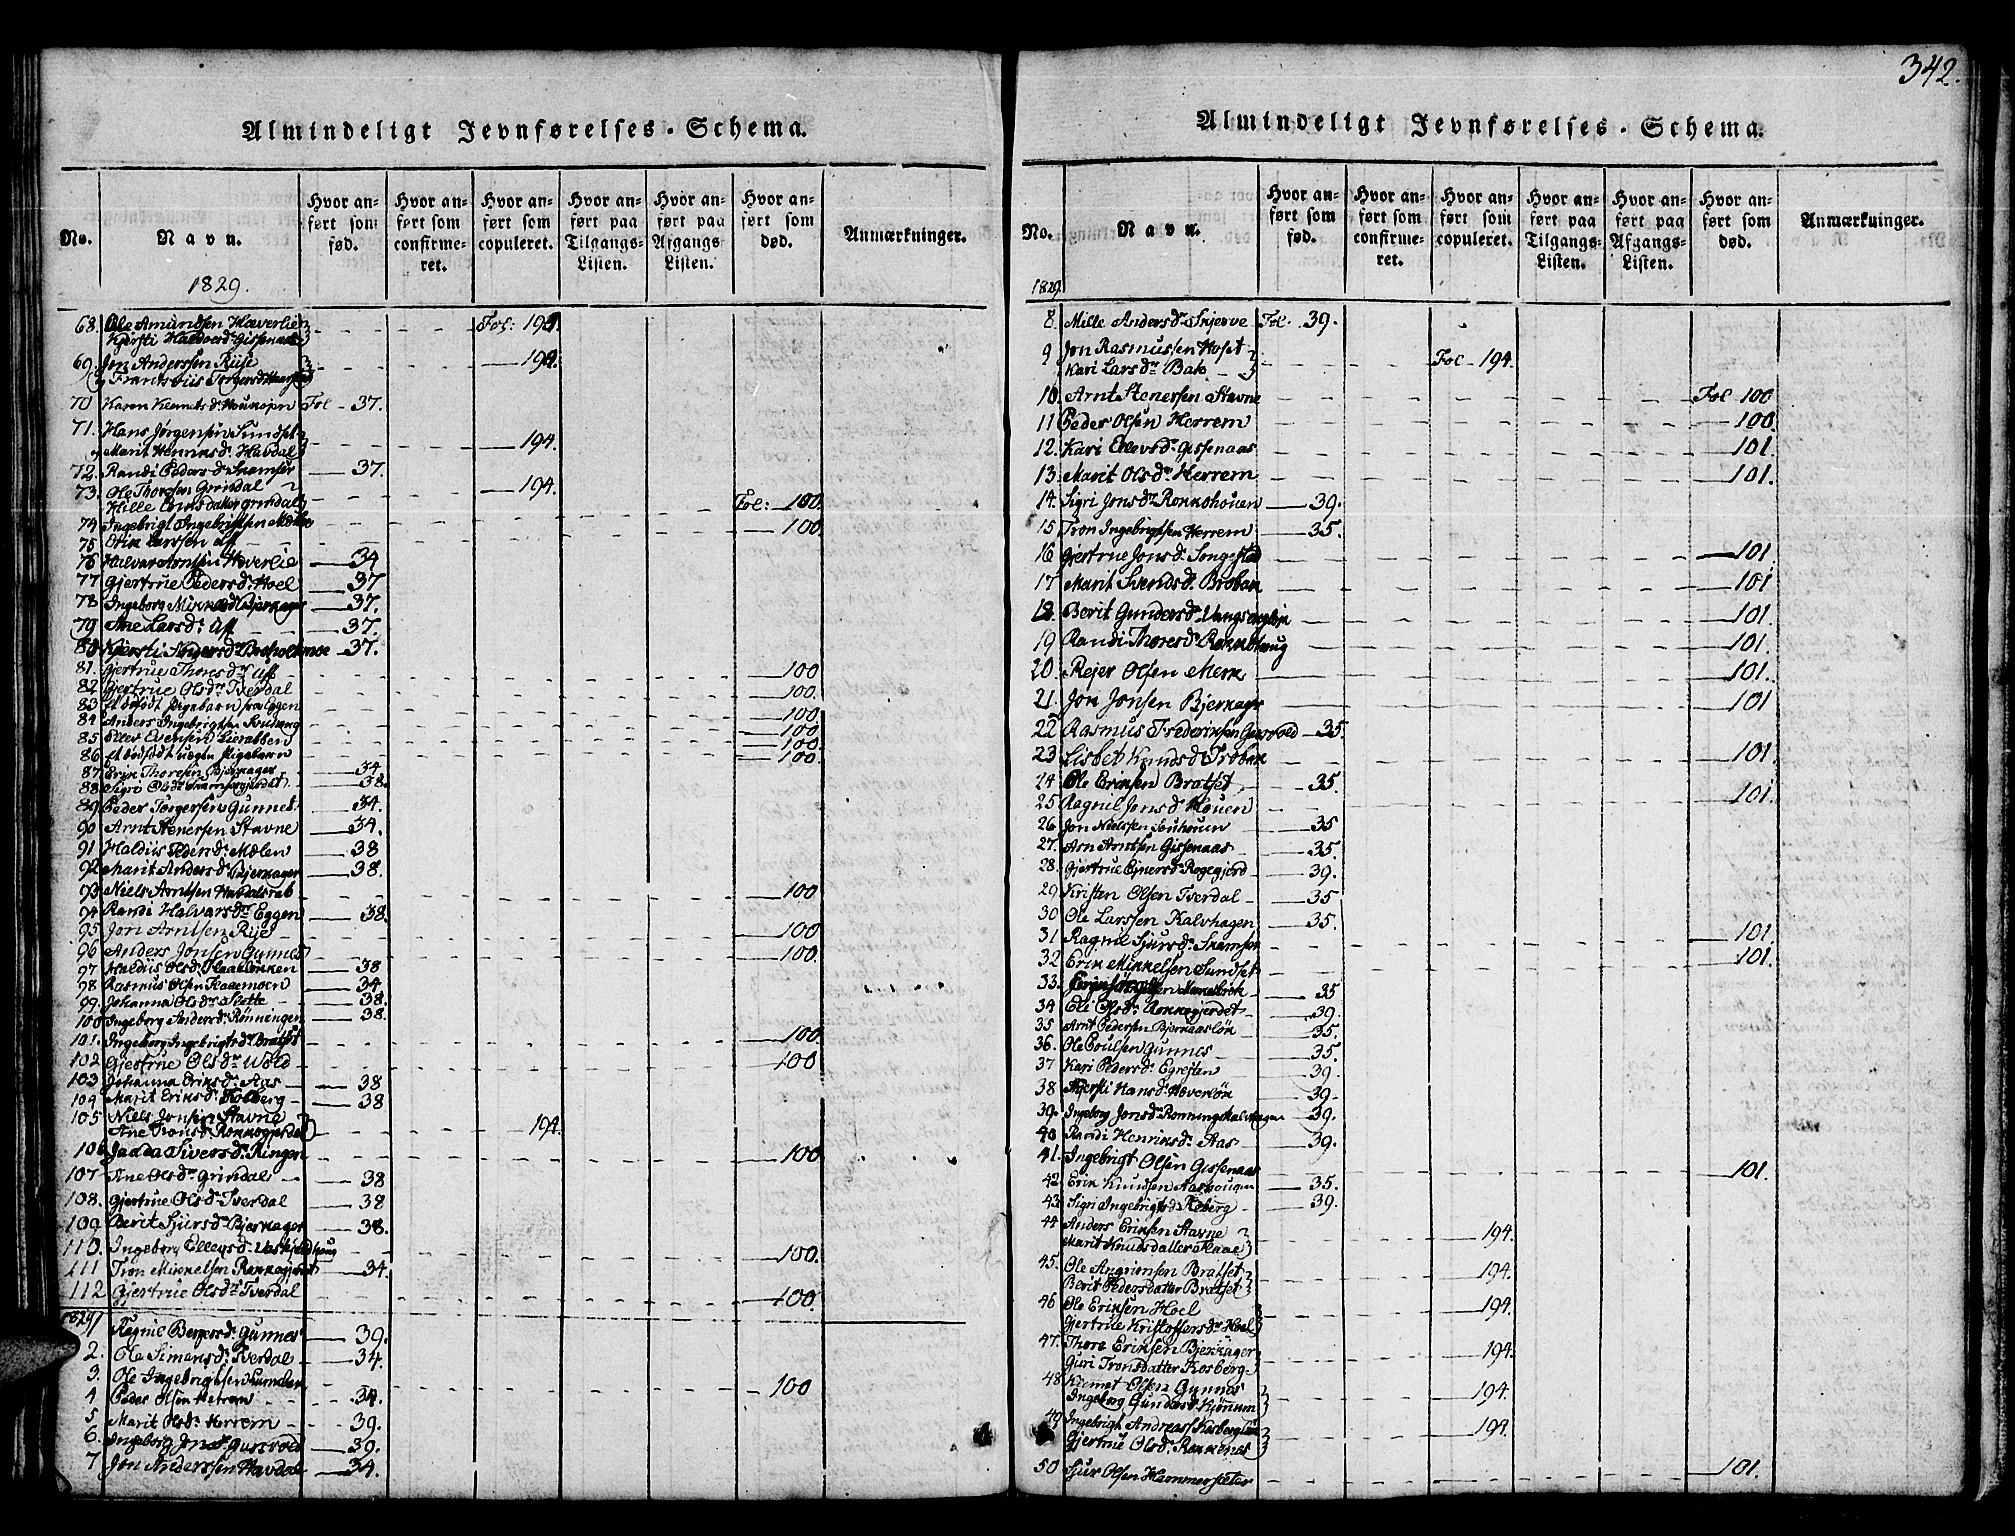 342.
Almindeligt Jevnførelses-Schema.
No.
Navn.
Hvor anført som fød.
Hvor anført som confirmeret.
Hvor anført som copuleret.
Hvor anført paa Tilgangs-Listen.
Hvor anført paa Afgangs Listen.
Hvor anført som død.
Anmærkninger.
1829.
68. Ole Amundsen Hæverlien Fol: 194.
Kjersti Halvorsdr Gissenaas
69. Jon Anderssen Riise 194.
70 Karen Klemetsdr Houkøpn Fol - 37.
71. Hans Jørgensen Sundset 194.
Marit Henriksdr Havdal
72. Randi Pedersdr Skamfer 37.
73. Ole Thoresen Grindal 194.
Hille Larsdatter Grindal Fol: 100.
74 Ingebrigt Ingebrigtsen Mælen 100.
75 Erik Larssen Aff
76 Halvar Arntsen Hæverlie 34
77 Gjertrue Pedersdr Hoel 37
78 Ingeborg Mikkelsdr Bjerkager 37.
79 Ane Larsdr Aff 37.
80 Kjersti 37.
81. Gjertrue Thoresdr Aff 100
82 Gjertrue Olsdr Tverdal 100.
83 et dødfødt Pigebarn fra Eggen 100.
84 Anders Ingebrigtsen 100
85 Ellev Evensen 100.
86 et dødfødt uægte Pigebarn 100.
87 Erik Thoresen Bjerkager 34
88 Sigri Olsdr 38.
89 Peder Torgersen Gunnes 34.
90 Arnt Stenersen Stavne 34.
91 Haldiis Pedersdr Mælen 38
92 Marit Andersdr Bjerkager 38.
93 Niels Arntsen Havdalsreb 100
94 Randi Halvarsdr Eggen 38.
95 Jon Arntsen Riise 100
96 Anders Jonsen Gunnes 100.
97 Haldiis Olsdr Flaaeløkken 38
98 Rasmus Olsen Flaaemoen 34
99 Johanna Olsdr Slette 38.
100 Ingeborg Andersdr Rønningen 38.
101. Ingeborg Ingebrigtsdr Bratset 100
102 Gjertrue Olsdr Wold 100
103 Johanna Eriksdr Aas 38
104 Marit Eriksdr Kosberg 38
105 Niels Jonsen Stavne 194.
Ane Tronsdr Rokkogjerdet
106 Jadda Siversdr Ringen 100
107 Ane Olsdr Grindal 38
108. Gjertrue Olsdr Tverdal 38
109 Berit Sjursdr Bjerkager 38.
110. Ingeborg Ellevsdr 100.
111 Tron Mikkelsen Rokkogjerdet 34.
112 Gjertrue Olsdr Tverdal 100.
1829
1 Ragnil Bergersdr Gunnes 39.
2. Ole Simensdr Tverdal 34.
3. Ole Ingebrigtsen 100
4 Peder Olsen Herrem 34.
5. Marit Olsdr Herrem 39.
6. Ingeborg Jonsdr 39.
7 Jon Anderssen Havdal 34.
Almindeligt Jevnførelses-Schema.
No.
Navn.
Hvor anført som fød.
Hvor anført som confirmeret.
Hvor anført som copuleret.
Hvor anført paa Tilgangs-Listen.
Hvor anført paa Afgangs-Listen.
Hvor anført som død.
Anmærkninger.
1829
8. Mille Andersdr Skjerve Fol. 39.
9 Jon Rasmussen Hoset Fol - 194.
Kari Larsdr Bak
10. Arnt Stenersen Stavne Fol 100
11 Peder Olsen Herrem 100.
12. Kari Ellevsdr Gissenaas 101.
13. Marit Olsdr Herrem 101.
14. Sigri Jonsdr Rokkohouen 39.
15 Tron Ingebrigtsen Herrem 35.
16 Gjertrue Jonsdr Songstad 101
17 Marit Svendsdr Brobak 101
18. Berit Gundersdr 101.
19 Randi Thoresdr Rokkohaug 101.
20. Rejer Olsen Merk 101.
21. Jon Jonsen Bjerkager 101
22 Rasmus Frederiksen 35.
23 Lisbet Knudsdr Brobak 101.
24 Ole Eriksen Bratset 35.
25 Ragnil Jonsdr Houen 101.
26. Jon Nielssen 35
27. Arn Arntsen Gissenaas 35.
28. Gjertrue Ejnersdr 39.
29 Kristen Olsen Tverdal 35
30 Ole Larssen Kalvhagen 35.
31 Ragnil Sjursdr Skamfer 101
32 Erik Mikkelsen Sundset 101.
33. 35
34 Eli Olsdr Rokkogjerdet 39.
35 Arnt Pedersen Bjørnaasløk 35.
36. Ole Poulsen Gunnes 35.
37 Kari Pedersdr 39
38 Kjersti Hansdr 39
39. Ingeborg Jonsdr 39.
40 Randi Henriksdr Aas 39.
41. Ingebrigt Olsen Gissenaas 101.
42. Erik Knudsen Aashougen 35.
43. Sigri Ingebrigtsdr 39.
44 Anders Eriksen Stavne 194.
Marit Knudsdatter Flaae
45. Ole Angrimsen Bratset 194.
Berit Pedersdatter Bratset
46 Ole Eriksen Hoel 194.
Gjertrue Kristoffersdr Hoel
47. Thore Eriksen Bjerkager 194.
Guri Tronsdatter Kosberg
48 Klemet Olsen Gunnes 194.
Ingeborg Gundersdr
49 Ingebrigt 194.
Gjertrue Olsdr Rokkenes
50 Sjur Olsen Hammersæter 101.